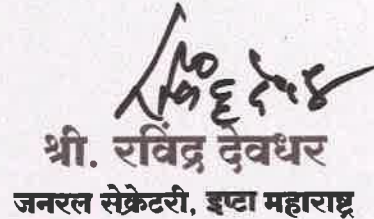 श्री. रविंद्र देवधर
जनरल सेक्रेटरी, इप्टा महाराष्ट्र